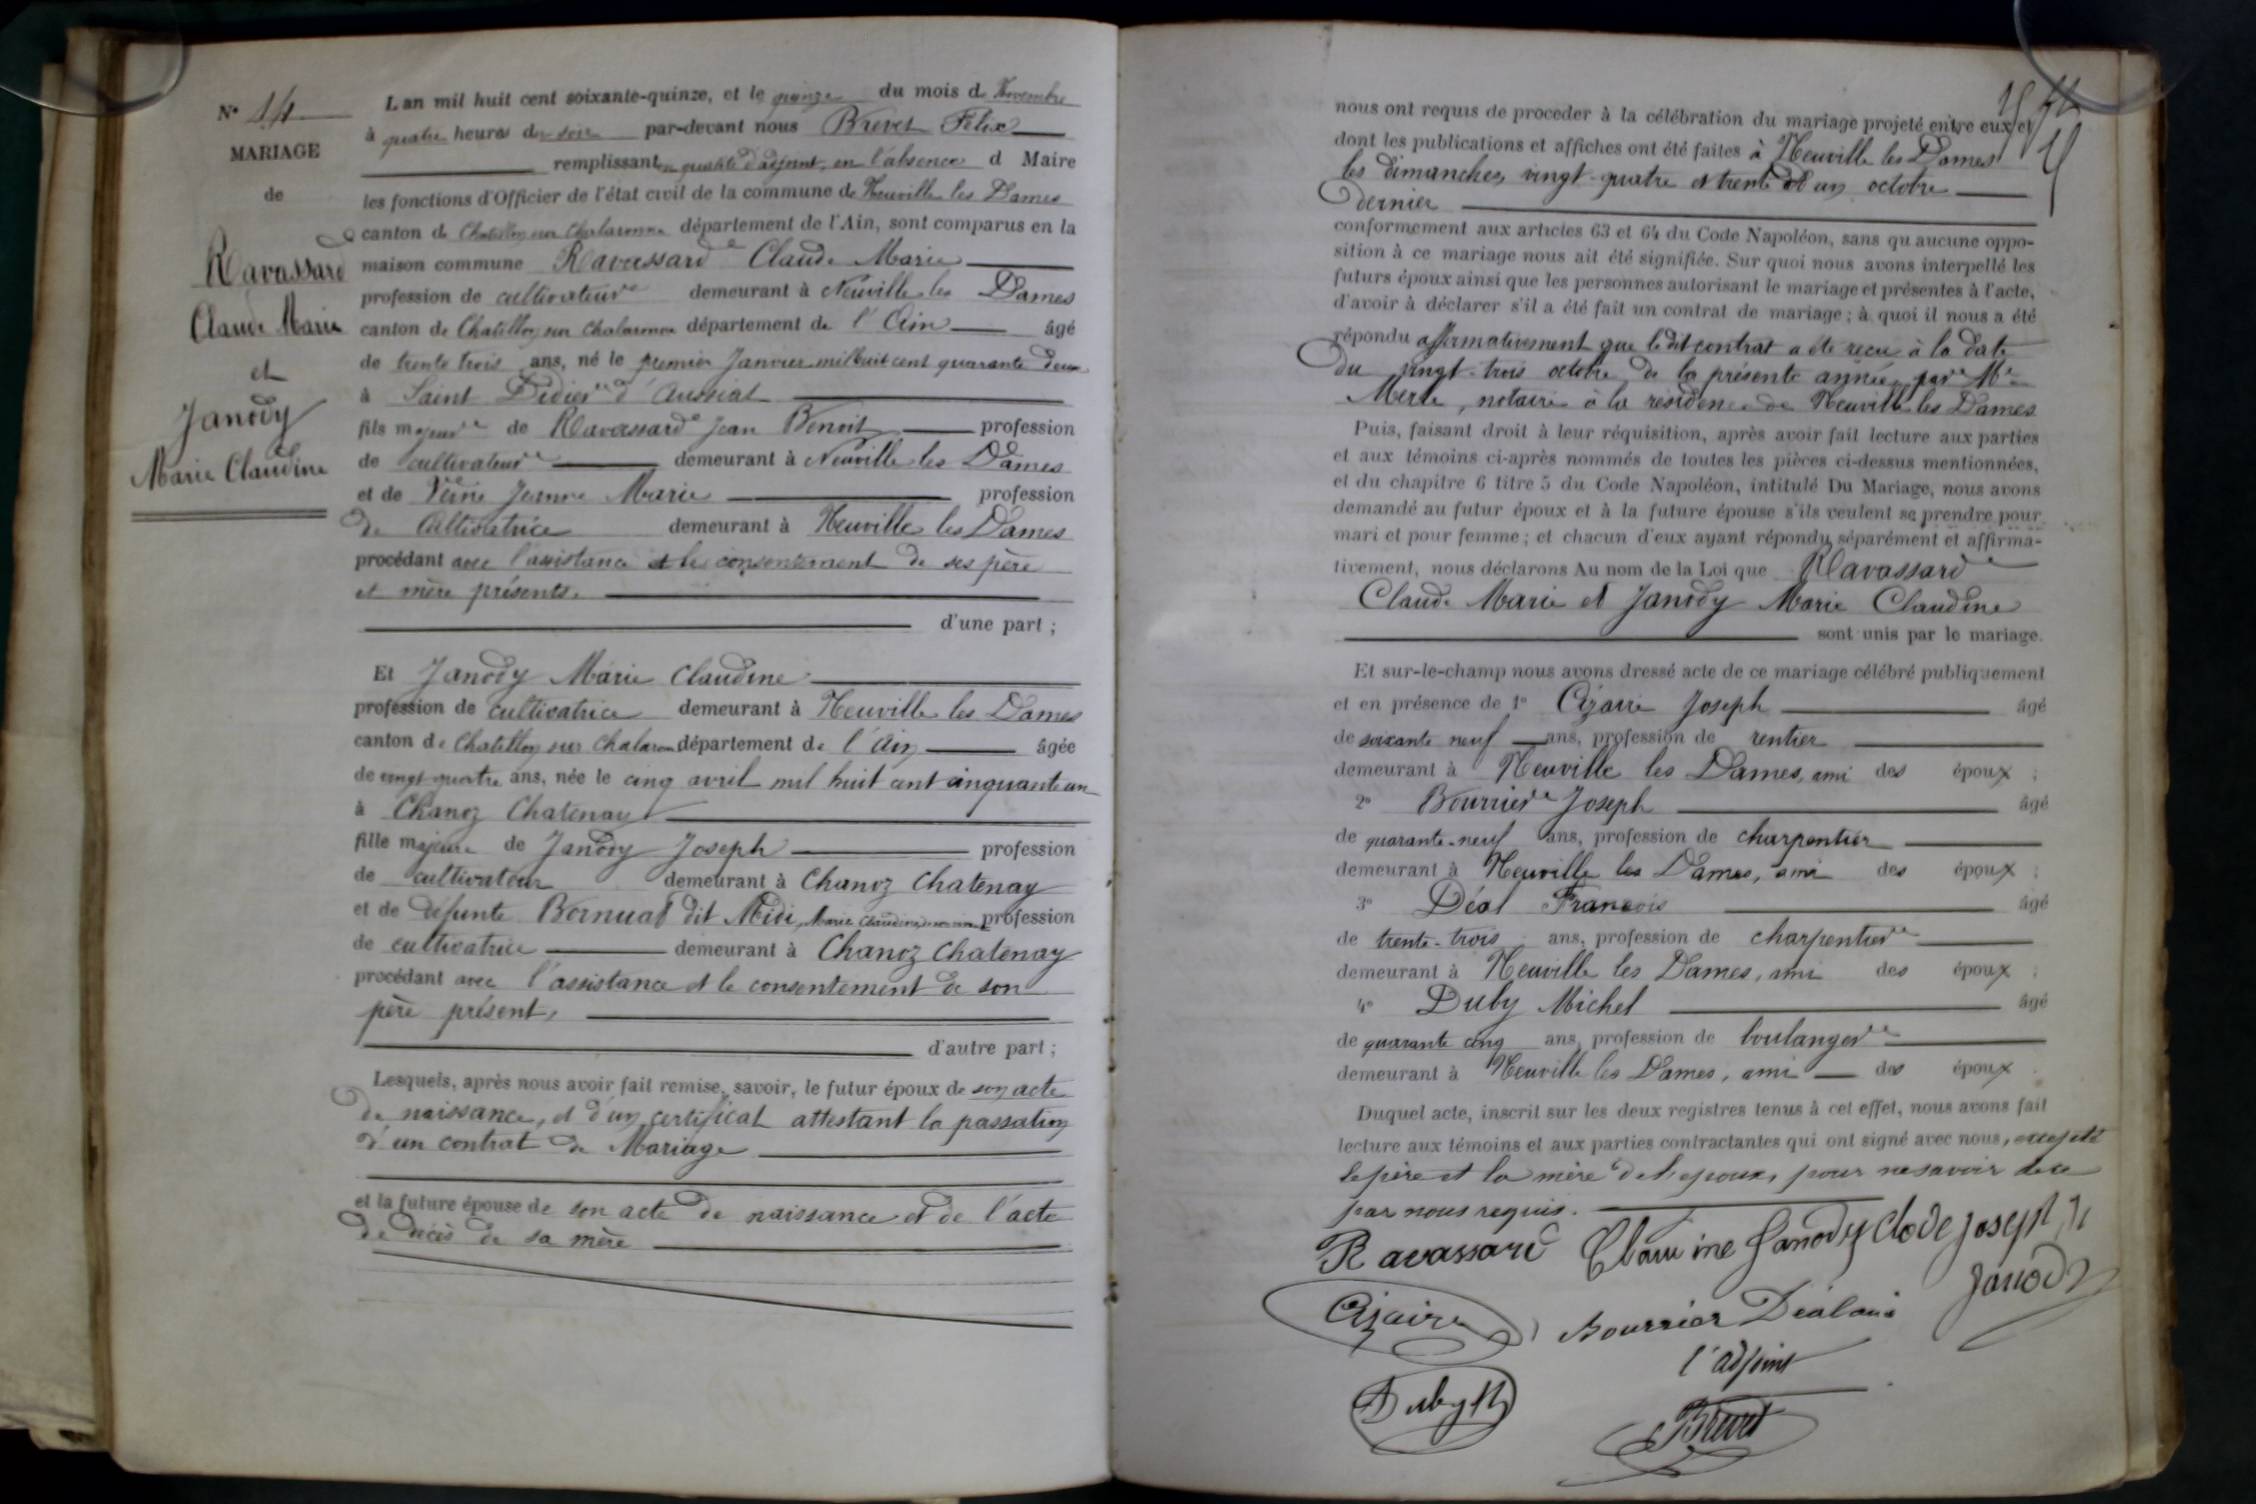 N° 14
MARIAGE
de
Ravassard
Claude Marie
et
Janody
Marie Claudine
L'an mil huit cent soixante-quinze, et le quinze du mois de Novembre
à quatre heures du soir par-devant nous Brevet Félix
remplissant en qualité d'adjoint, en l'absence d Maire
les fonctions d'Officier de l'état civil de la commune de Neuville les Dames
canton de Chatillon sur Chalaronne département de l'Ain, sont comparus en la
maison commune Ravassard Claude Marie
profession de cultivateur demeurant à Neuville les Dames
canton de Chatillon sur Chalaronne département de l'Ain âgé
de trente trois ans, né le premier Janvier mil huit cent quarante deux
à Saint Didier d'Aussiat
fils majeur de Ravassard Jean Benoit profession
de cultivateur demeurant à Neuville les Dames
et de Jeanne Marie profession
de Cultivatrice demeurant à Neuville les Dames
procédant avec l'assistance et le consentement de ses père
et mère présents.
d'une part ;
Et Janody Marie Claudine
profession de cultivatrice demeurant à Neuville les Dames
canton de Chatillon sur Chalaron département de l'Ain âgée
de vingt quatre ans, née le cinq avril mil huit cent cinquante un
à Chanoz Chatenay
fille majeure de Janody Joseph profession
de cultivateur demeurant à Chanoz Chatenay
et de défunte Bernuat dit Midi, Marie Claudine, profession
de cultivatrice demeurant à Chanoz Chatenay
procédant avec l'assistance et le consentement de son
père présent,
d'autre part ;
Lesquels, après nous avoir fait remise, savoir, le futur époux de son acte
de naissance, et d'un certificat attestant la passation
d'un contrat de Mariage
et la future épouse de son acte de naissance et de l'acte
de décès de sa mère
nous ont requis de procéder à la célébration du mariage projeté entre eux et
dont les publications et affiches ont été faites à Neuville les Dames
les dimanches, vingt-quatre et trente et un octobre
dernier
conformément aux articles 63 et 64 du Code Napoléon, sans qu'aucune oppo-
sition à ce mariage nous ait été signifiée. Sur quoi nous avons interpellé les
futurs époux ainsi que les personnes autorisant le mariage et présentes à l'acte,
d'avoir à déclarer s'il a été fait un contrat de mariage ; à quoi il nous a été
répondu affirmativement que ledit contrat a été reçu à la date
du vingt-trois octobre de la présente année, par Me
Merle, notaire à la résidence de Neuville les Dames
Puis, faisant droit à leur réquisition, après avoir fait lecture aux parties
et aux témoins ci-après nommés de toutes les pièces ci-dessus mentionnées,
et du chapitre 6 titre 5 du Code Napoléon, intitulé Du Mariage, nous avons
demandé au futur époux et à la future épouse s'ils veulent se prendre pour
mari et pour femme ; et chacun d'eux ayant répondu séparément et affirma-
tivement, nous déclarons Au nom de la Loi que Ravassard
Claude Marie et Janody Marie Claudine
sont unis par le mariage.
Et sur-le-champ nous avons dressé acte de ce mariage célébré publiquement
et en présence de 1° Cizaire Joseph âgé
de soixante neuf ans, profession de rentier
demeurant à Neuville les Dames, ami des époux ;
2° Bourrier Joseph âgé
de quarante-neuf ans, profession de charpentier
demeurant à Neuville les Dames, ami des époux ;
3° Déal François âgé
de trente-trois ans, profession de charpentier
demeurant à Neuville les Dames, ami des époux ;
4° Duby Michel âgé
de quarante cinq ans, profession de boulanger
demeurant à Neuville les Dames, ami des époux
Duquel acte, inscrit sur les deux registres tenus à cet effet, nous avons fait
lecture aux témoins et aux parties contractantes qui ont signé avec nous, excepté
le père et la mère de l'époux, pour ne savoir de ce
par nous requis.
Ravassard Claudine Janody Joseph
Janody
Cizaire Bourrier Déal
l'adjoint
Duby M
Brevet